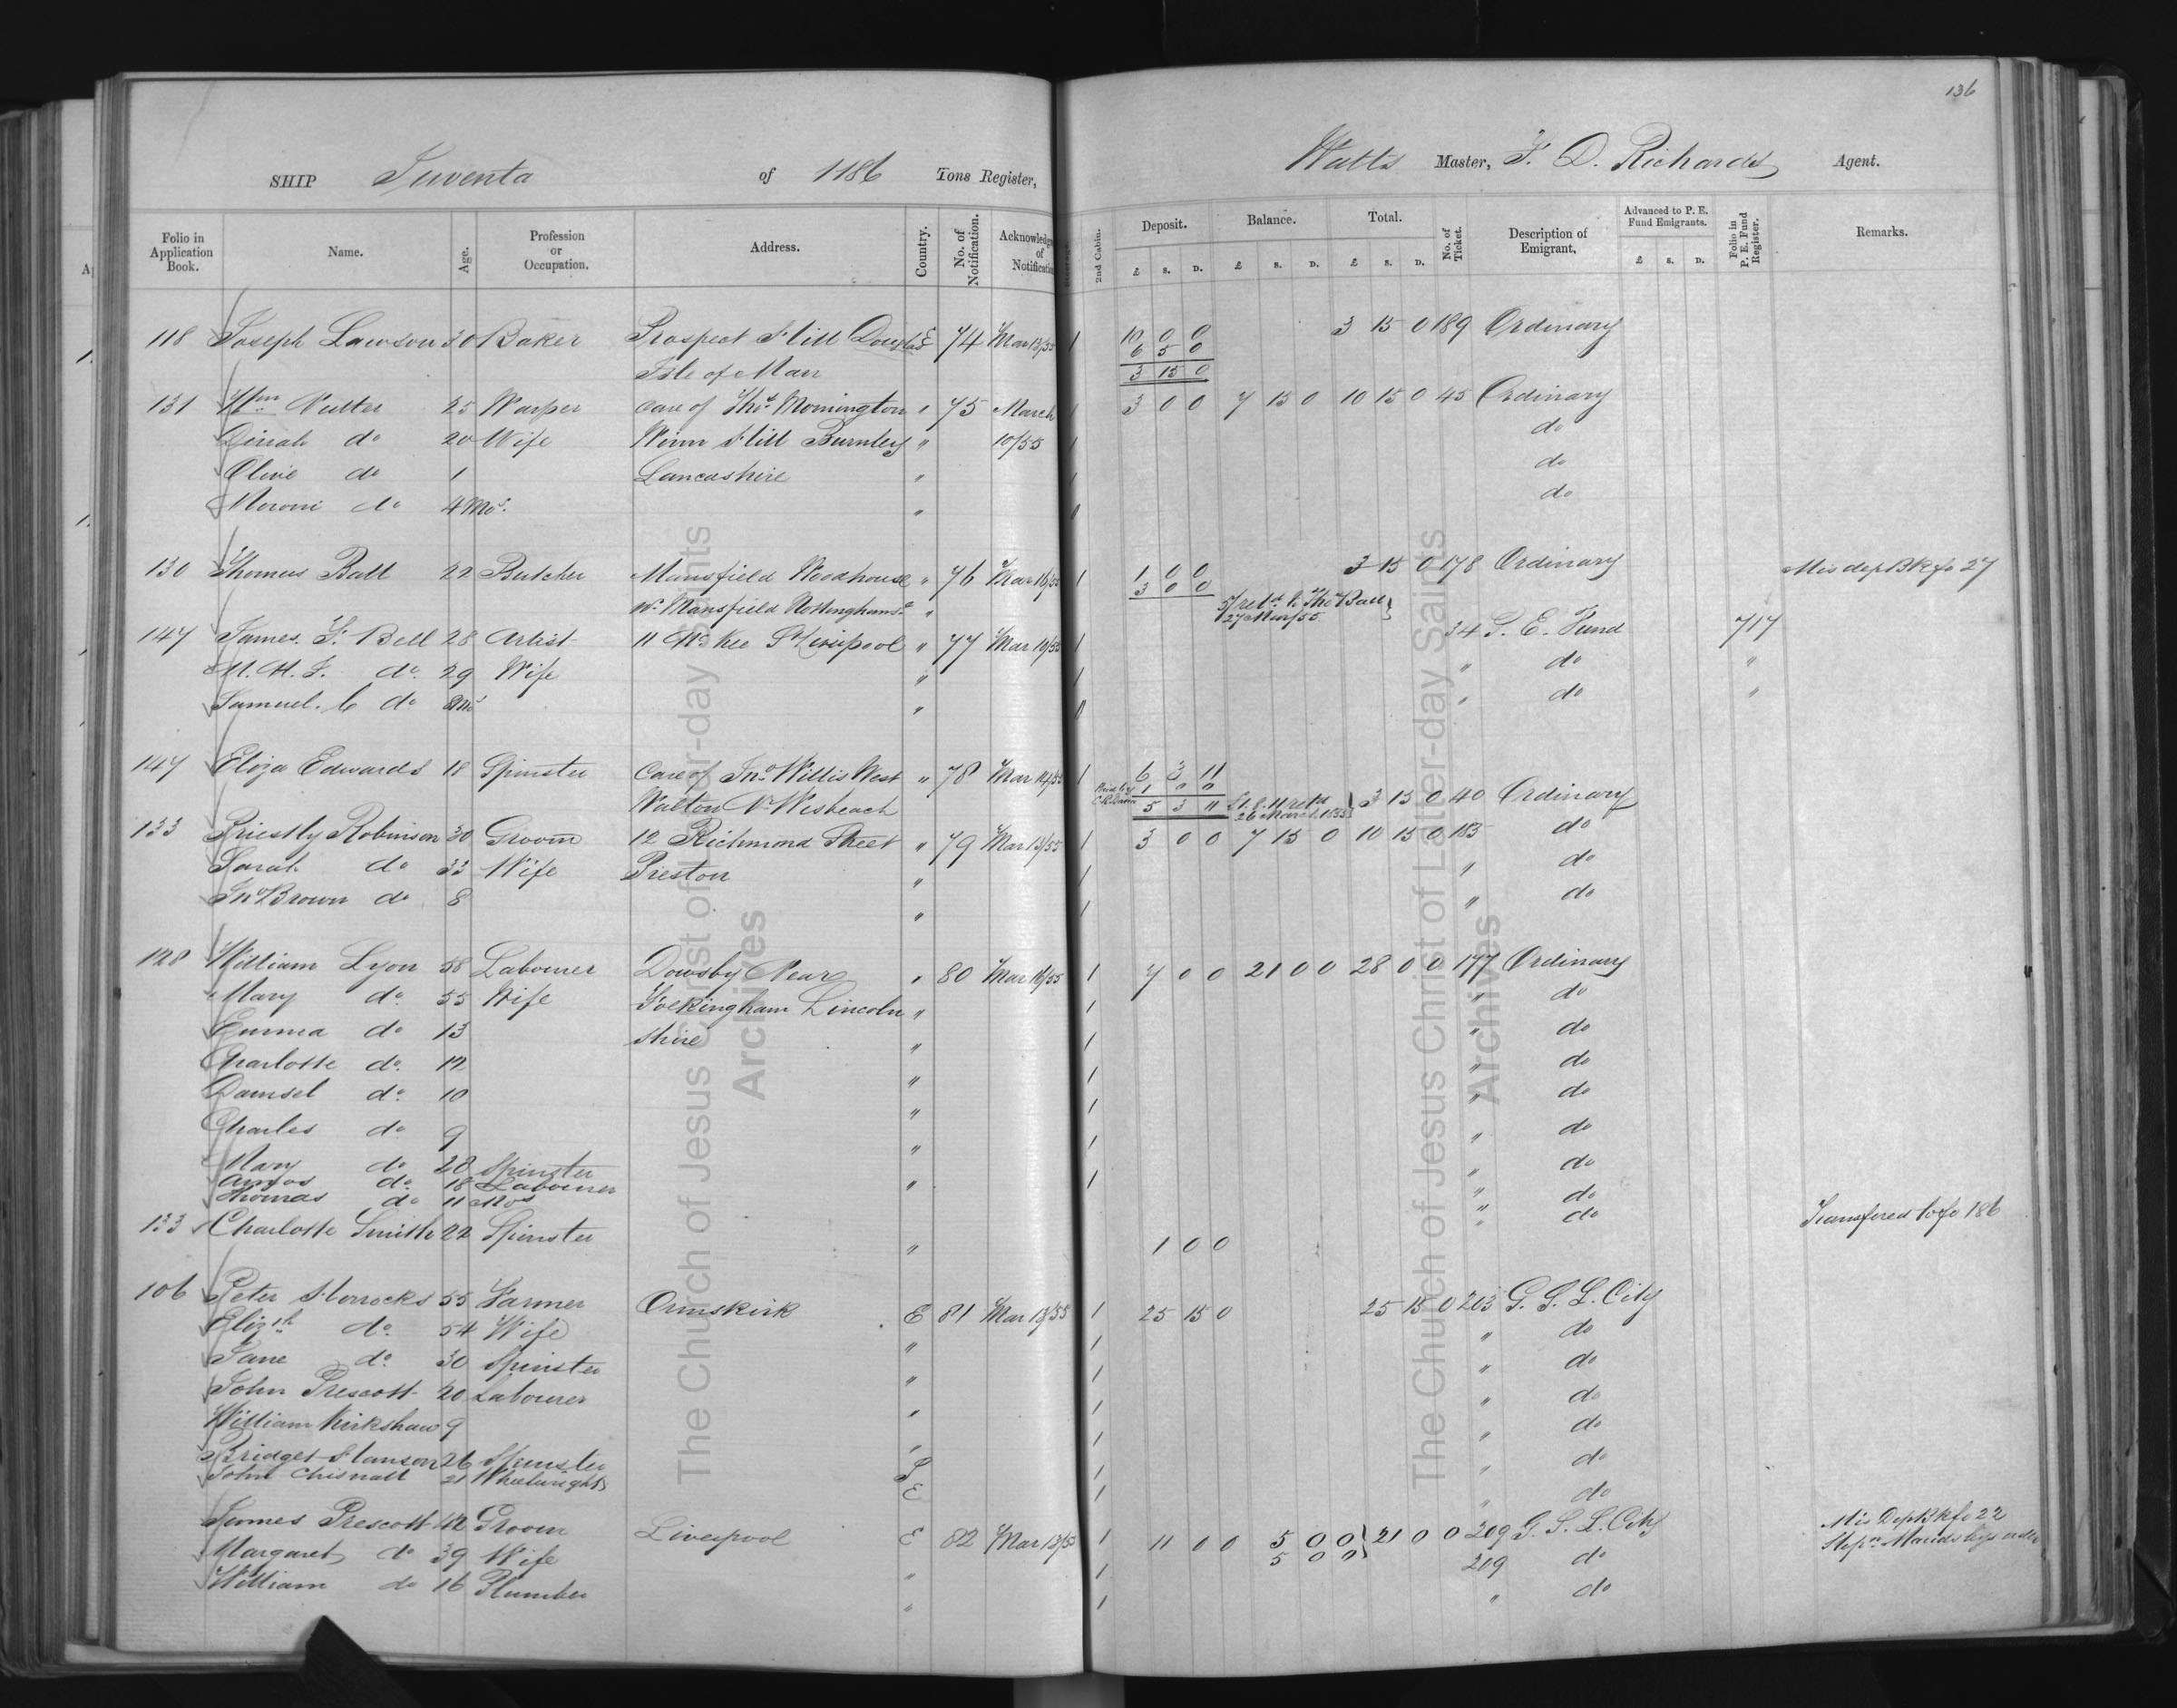 136
SHIP Juventa of 1186 Tons Register, Watts Master, F. D. Richards Agent.
Folio in Application Book. Name. Age. Profession or Occupation. Address. Country. No. of Notification. Acknowledg of Notification 2nd Cabin. Deposit. £ s. D. Balance. £ s. D. Total. £ s. D. No. of Ticket. Description of Emigrant, Advanced to P. E. Fund Emigrants. £ s. D. Folio in P. E. Fund Register. Remarks.
118 Joseph Lawson 30 Baker Prospect Hill Douglas E 74 Mar 13/55 1 10 0 0 3 15 0 189 Ordinary
6 5 0
Isle of Man 3 15 0
131 Wm Nutter 25 Warper Care of Thos Mornington " 75 March 1 3 0 0 7 15 0 10 15 0 45 Ordinary
Dinah do 20 Wife Burnley " 10/55 1 do
Olive do 1 Lancashire " 1 do
Moroni do 4 Mos. " do
130 Thomas Ball 22 Butcher Mansfield Woodhouse " 76 Mar 16/55 1 1 0 0 3 15 0 178 Ordinary Mis dep Bk fo 27
3 0 0
Nr Mansfield Nottinghams " 5/ retd to Thos Ball
27 Mar/55
147 James F. Bell 28 Artist 11 St Liverpool " 77 Mar 19/55 1 34 P. E. Fund 717
do. 29 Wife " 1 " do "
Samuel. C do " " do "
147 Eliza Edwards 18 Spinster Care of Jno Willis West " 78 Mar 14/55 1 6 3 11
1 0 0
Walton Nr Wisbeach 5 3 11 £1. 8. 11 retd 26 March 1855 3 15 0 40 Ordinary
133 Priestly Robinson 30 Groom 12 Richmond Street " 79 Mar 13/55 1 3 0 0 7 15 0 10 15 0 183 do
Sarah do 33 Wife Preston " 1 " do
Jno Brown do 8 " 1 " do
128 William Lyon 58 Labourer Dowsby Near " 80 Mar 16/55 1 7 0 0 21 0 0 28 0 0 177 Ordinary
Mary do. 55 Wife Folkingham Lincoln " 1 " do
Emma do 13 shire " 1 " do
Charlotte do. 12 " 1 " do
Damsel do. 10 " 1 " do
Charles do 9 " 1 " do
Mary do 20 Spinster " 1 " do
Amos do. 18 Labourer " do
Thomas do 11 Mos " do
133 Charlotte Smith 22 Spinster " 1 0 0 Transfered to fo 186
106 Peter Horrocks 55 Farmer Ormskirk E 81 Mar 13/55 1 25 15 0 25 15 0 203 G. S. L. City
Elizth do. 54 Wife " 1 " do
Jane do. 30 Spinster " 1 " do
John Prescott 20 Labourer " 1 " do
William Kirkshaw 9 " 1 " do
Bridget Hanson 26 Spinster 1 " do
John Chisnall 21 Wheelwright E 1 " do
James Prescott 42 Groom Liverpool E 82 Mar 13/55 1 11 0 0 5 0 0 21 0 0 209 G. S. L. City Mis Dep Bk fo 22
Margaret do 39 Wife " 1 5 0 0 209 do
William do 16 Plumber " 1 " do
The Church of Jesus Christ of Latter-day Saints
Archives
The Church of Jesus Christ of Latter-day Saints
Archives